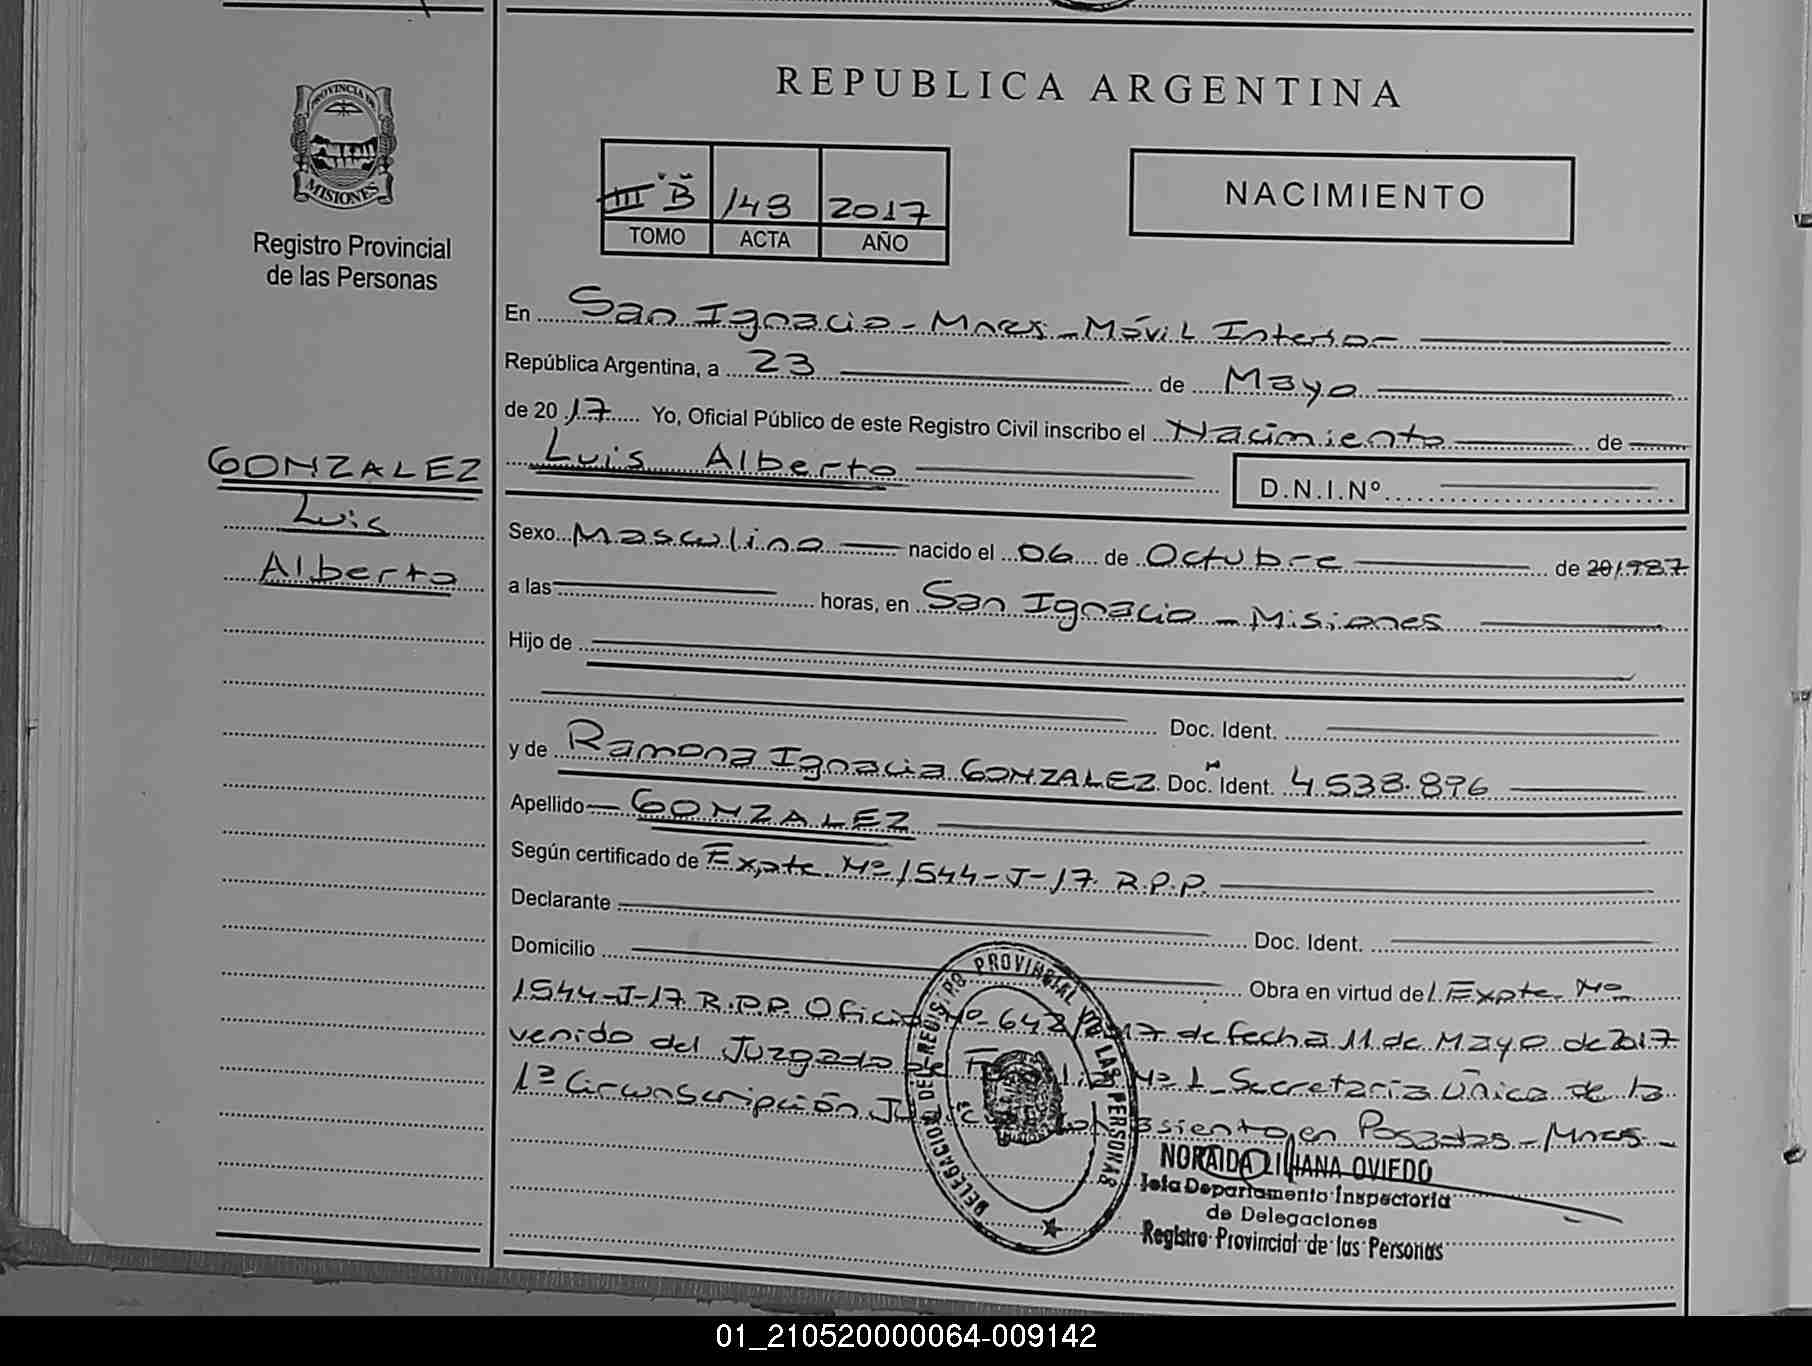 REPUBLICA ARGENTINA
PROVINCIA DE
MISIONES
Registro Provincial
de las Personas
III "B" 149 2017
TOMO ACTA AÑO
NACIMIENTO
En San Ignacio - Mnes - Móvil Interior
República Argentina, a 23 de Mayo
de 2017 Yo, Oficial Público de este Registro Civil inscribo el Nacimiento de
Luis Alberto D.N.I.Nº
GONZALEZ
Luis
Alberto
Sexo Masculino nacido el 06 de Octubre de 20 1987
a las horas, en San Ignacio - Misiones
Hijo de
Doc. Ident.
y de Ramona Ignacia GONZALEZ Doc. Ident. 4.538.896
Apellido GONZALEZ
Según certificado de Expte Nº 1544-J-17 R.P.P.
Declarante Doc. Ident.
Domicilio Obra en virtud del Expte. Nº
1544-J-17 R.P.P. Oficio Nº 642/2017 de fecha 11 de Mayo de 2017
venido del Juzgado de Familia Nº 1 Secretaria Única de la
1ª Circunscripción Judicial con asiento en Posadas - Mnes -
DELEGACION DEL REGISTRO PROVINCIAL DE LAS PERSONAS
NORAIDA LILIANA OVIEDO
Jefa Departamento Inspectoria
de Delegaciones
Registro Provincial de las Personas
01_210520000064-009142